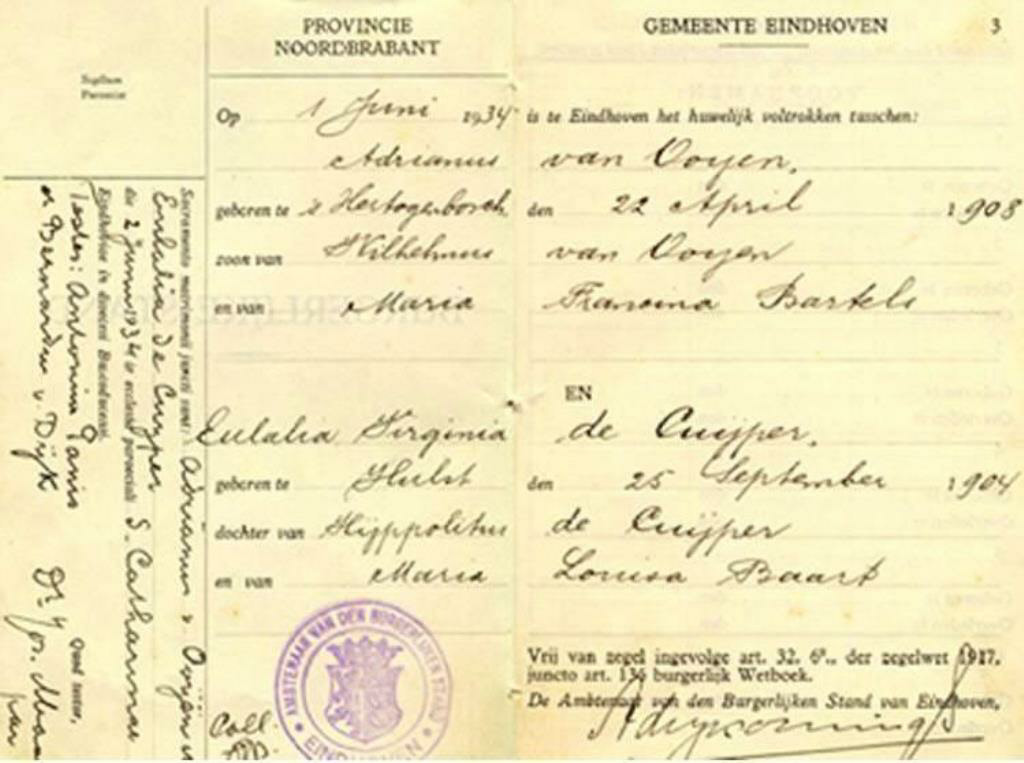 PROVINCIE
NOORDBRABANT
GEMEENTE EINDHOVEN 3
Sigillum
Parociae
Op 1 Juni 1934 is te Eindhoven het huwelijk voltrokken tusschen:
Adrianus van Ooyen,
geboren te 's Hertogenbosch den 22 April 1903
zoon van Wilhelmus van Ooyen
en van Maria Francina Bartels
EN
Eulalia Virginia de Cuijper,
geboren te Hulst den 25 September 1904
dochter van Hijppolitus de Cuijper
en van Maria Louisa Baart
Vrij van zegel ingevolge art. 32. 6e., der zegelwet 1917,
juncto art. 136 burgerlijk Wetboek.
De Ambtenaar van den Burgerlijken Stand van Eindhoven,
AMBTENAAR VAN DEN BURGERLIJKEN STAND
EINDHOVEN
Coll.
Sacramento matrimonii juncti sunt: Adrianus v. Ooyen
Eulalia de Cuyper
die 2 Junii 1934 in ecclesia paroeciali S. Catharinae
Eindhoven in dioecesi Buscoducensi.
Testes: Antonius Panis
et Bernardus v. Dijk
Quod testor,
Dr.